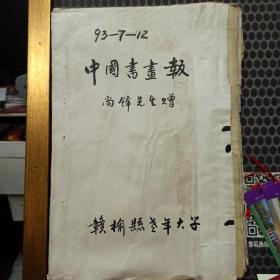 93-7-12
中國書畫報
尚鐸先生贈
贛榆縣老年大学